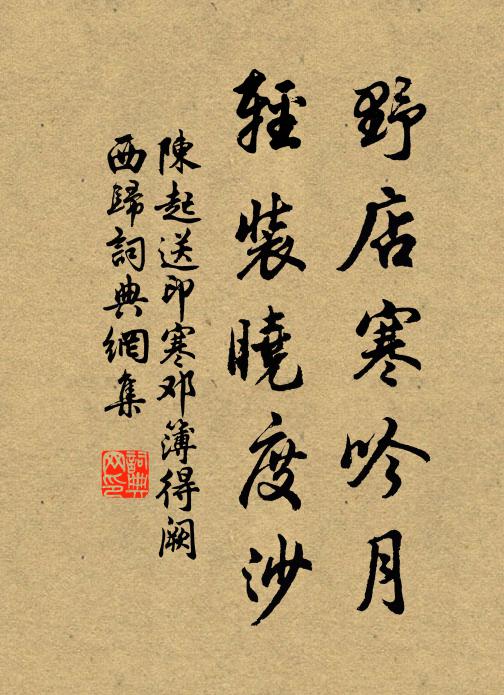 野店寒吟月
輕裝曉度沙
陳起送印寒邓簿得闕
西歸詞典網集
詞典网印